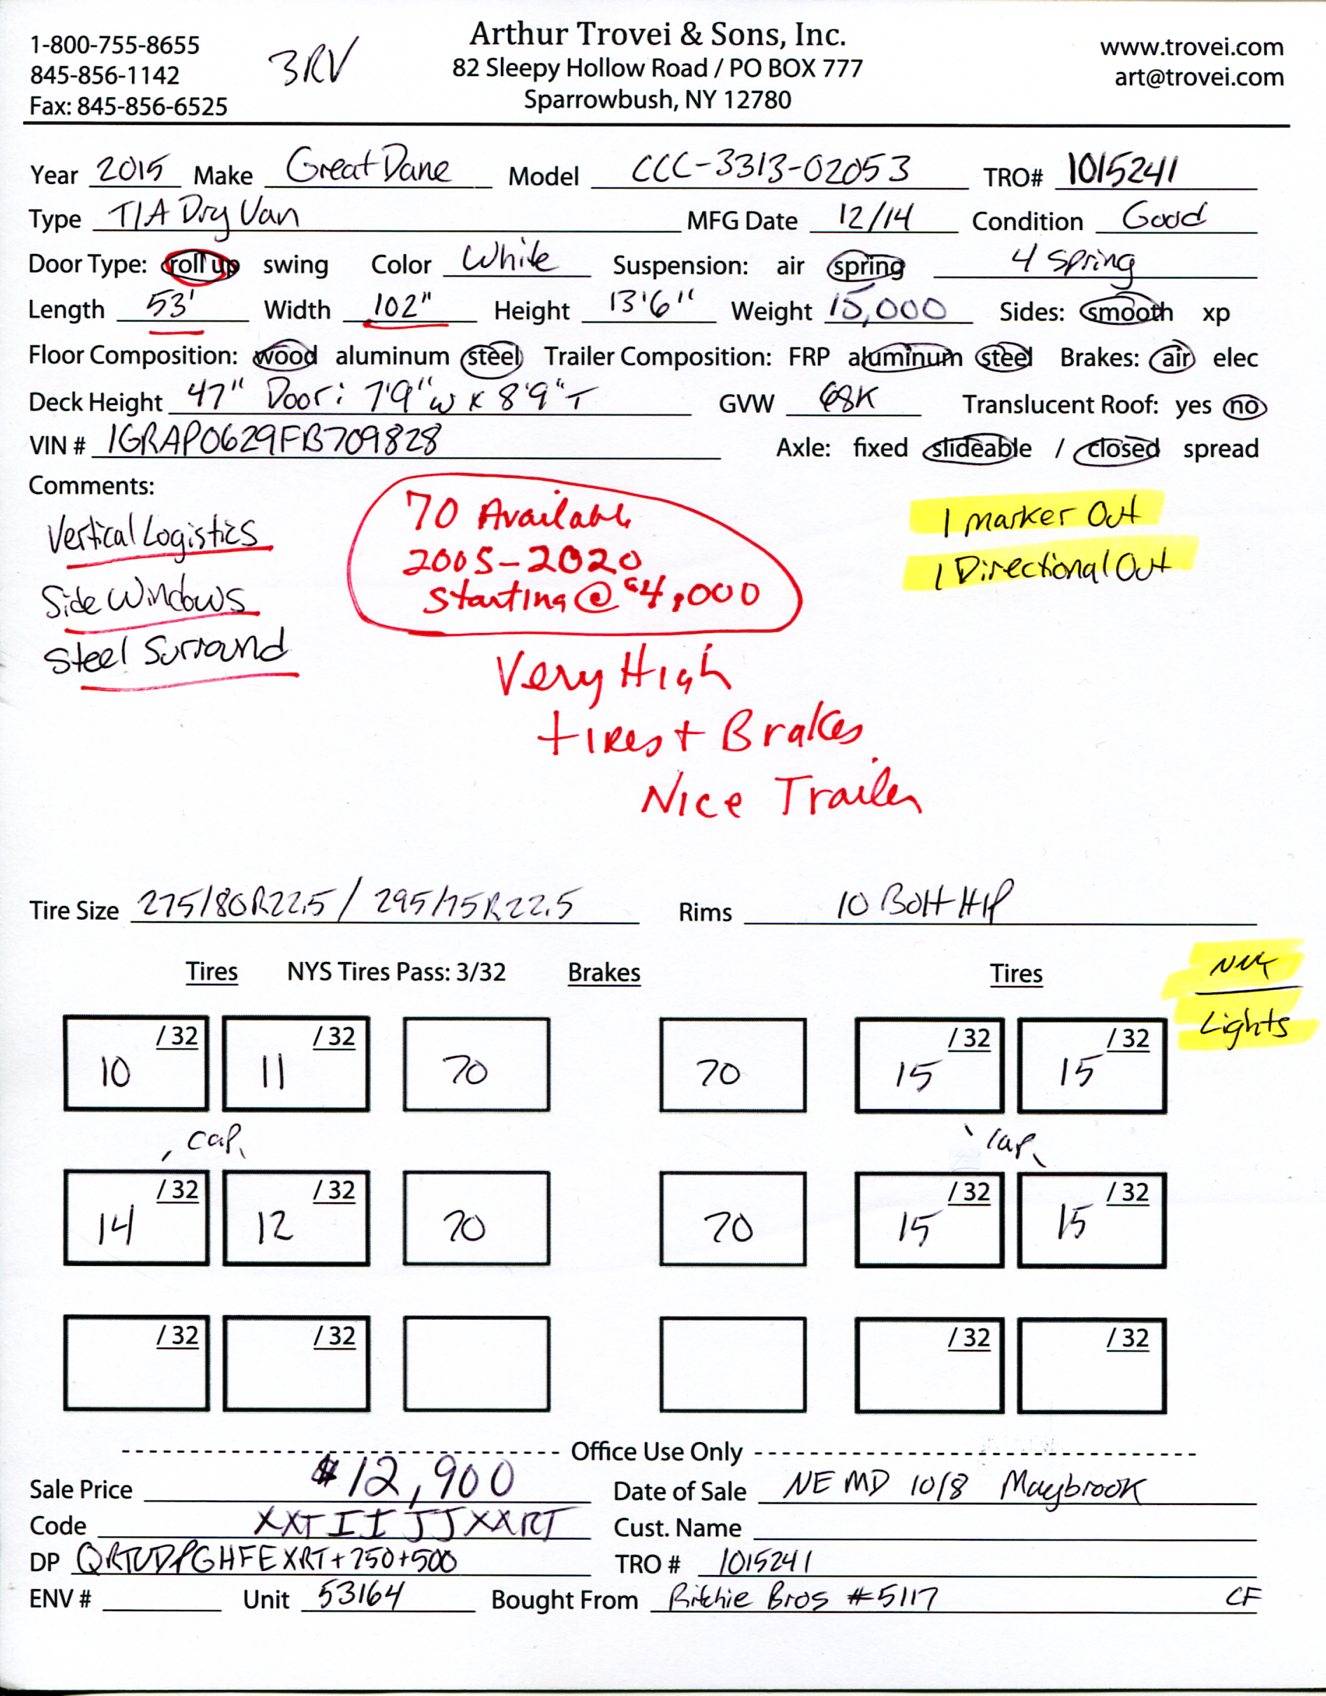 1-800-755-8655
845-856-1142
Fax: 845-856-6525
3RV
Arthur Trovei & Sons, Inc.
82 Sleepy Hollow Road / PO BOX 777
Sparrowbush, NY 12780
www.trovei.com
art@trovei.com
Year 2015 Make Great Dane Model CCC-3313-02053 TRO# 1015241
Type T/A Dry Van MFG Date 12/14 Condition Good
Door Type: roll up swing Color White Suspension: air spring 4 Spring
Length 53' Width 102" Height 13'6" Weight 15,000 Sides: smooth xp
Floor Composition: wood aluminum steel Trailer Composition: FRP aluminum steel Brakes: air elec
Deck Height 47" Door: 7'9"W x 8'9"T GVW 68K Translucent Roof: yes no
VIN # 1GRAP0629FB709828 Axle: fixed slideable / closed spread
Comments:
Vertical Logistics
Side Windows
Steel Surround
70 Available
2005-2020
Starting @ $4,000
Very High
tires + Brakes
Nice Trailer
1 Marker Out
1 Directional Out
Tire Size 275/80R22.5 / 295/75R22.5 Rims 10 Bolt H/P
Tires NYS Tires Pass: 3/32 Brakes Tires
Lights
10 /32 11 /32 70 70 15 /32 15 /32
cap cap
14 /32 12 /32 70 70 15 /32 15 /32
/32 /32 /32 /32
Office Use Only
Sale Price $12,900 Date of Sale NE MD 10/8 Maybrook
Code XXTIIJJXXRT Cust. Name
DP QRTUDPGHFEXRT+750+500 TRO # 1015241
ENV # Unit 53164 Bought From Ritchie Bros #5117 CF